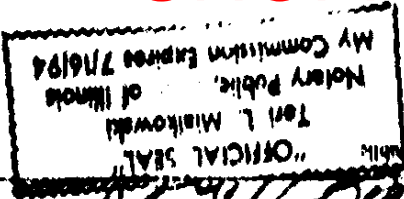 "OFFICIAL SEAL"
Teri L. Mialkowski
Notary Public, of Illinois
My Commission Expires 7/16/94